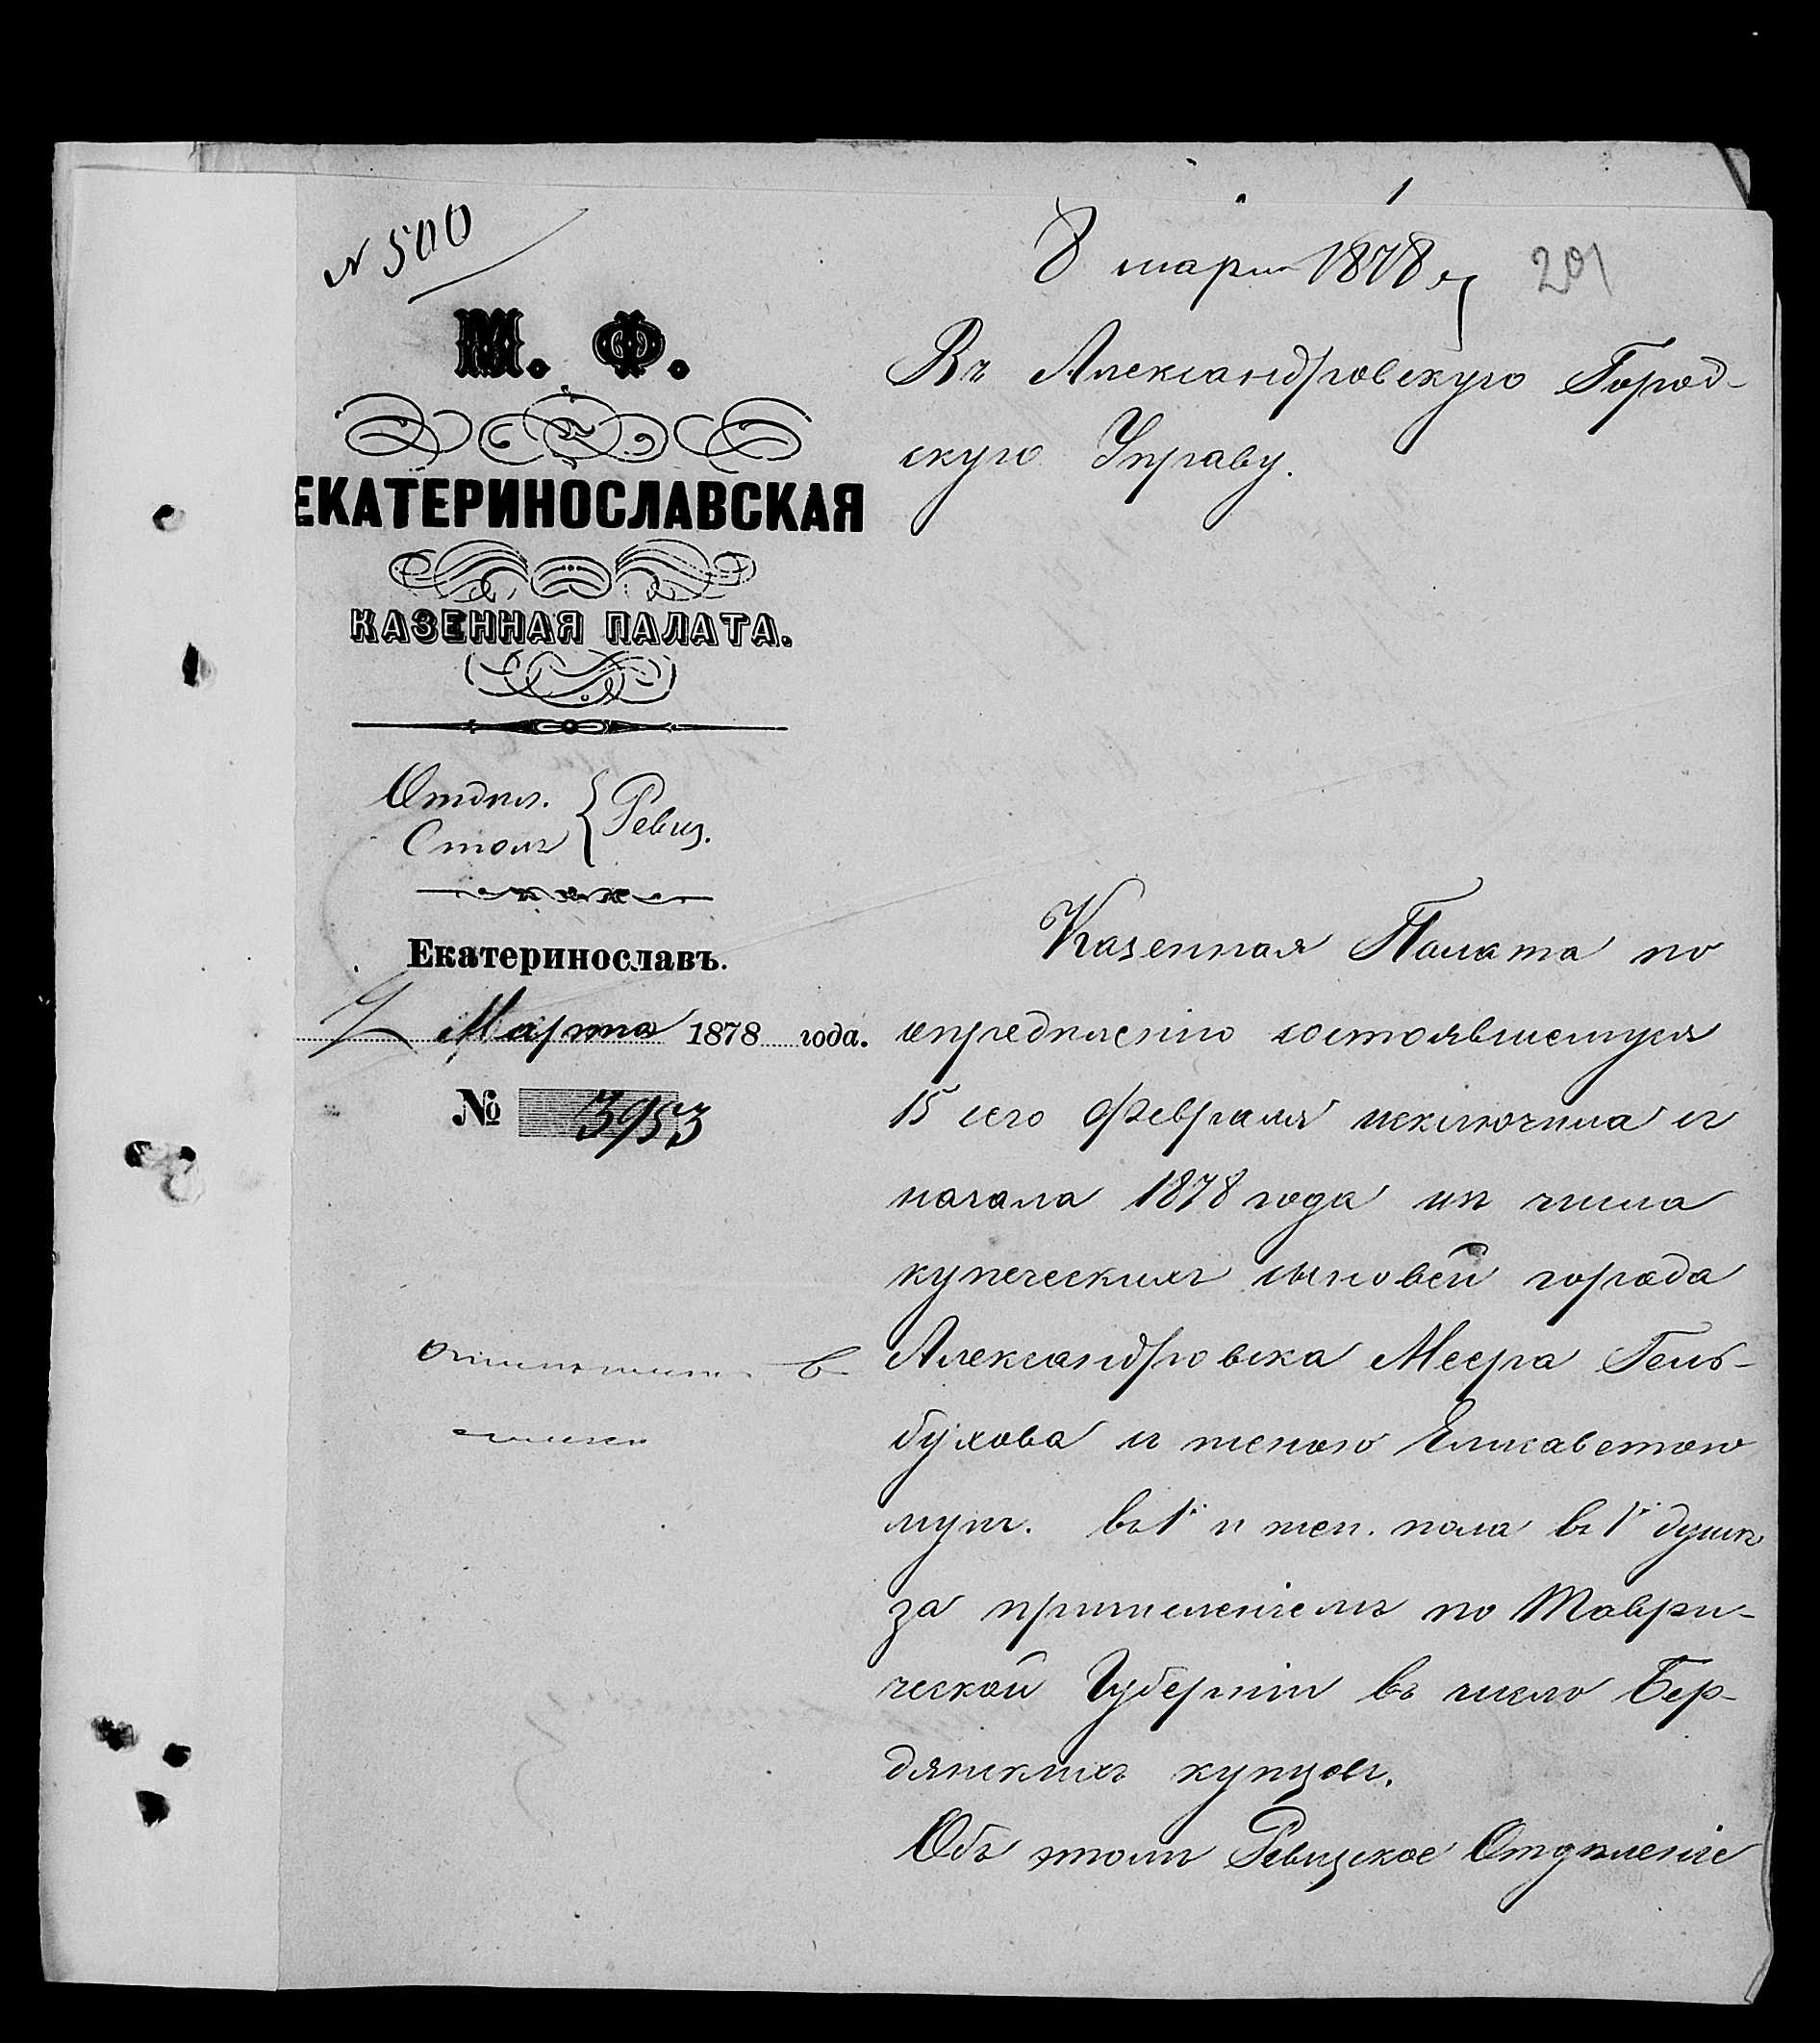 № 500
8 марта 1878 г
201
М. Ф.
ЕКАТЕРИНОСЛАВСКАЯ
КАЗЕННАЯ ПАЛАТА.
Отдѣл.
Столъ
Ревиз.
Екатеринославъ.
7 Марта 1878 года.
№ 3953
Въ Александровскую Город-
скую Управу.
Казенная Палата по
опредѣленію состоявшемуся
15 сего Февраля исключила съ
начала 1878 года изъ числа
купеческихъ сыновей города
Александровска Меера Гель-
бухова съ женою Елисаветою
муж. въ 1й и жен. пола въ 1й душѣ
за причисленіемъ по Таври-
ческой Губерніи въ число Бер-
дянскихъ купцовъ.
Объ этомъ Ревизское Отдѣленіе